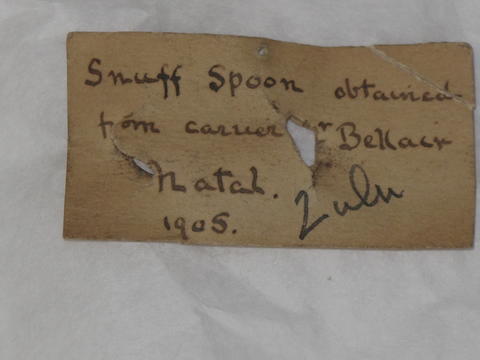 Snuff Spoon obtained
from carver Bellair
Natal.
1905.
Zulu